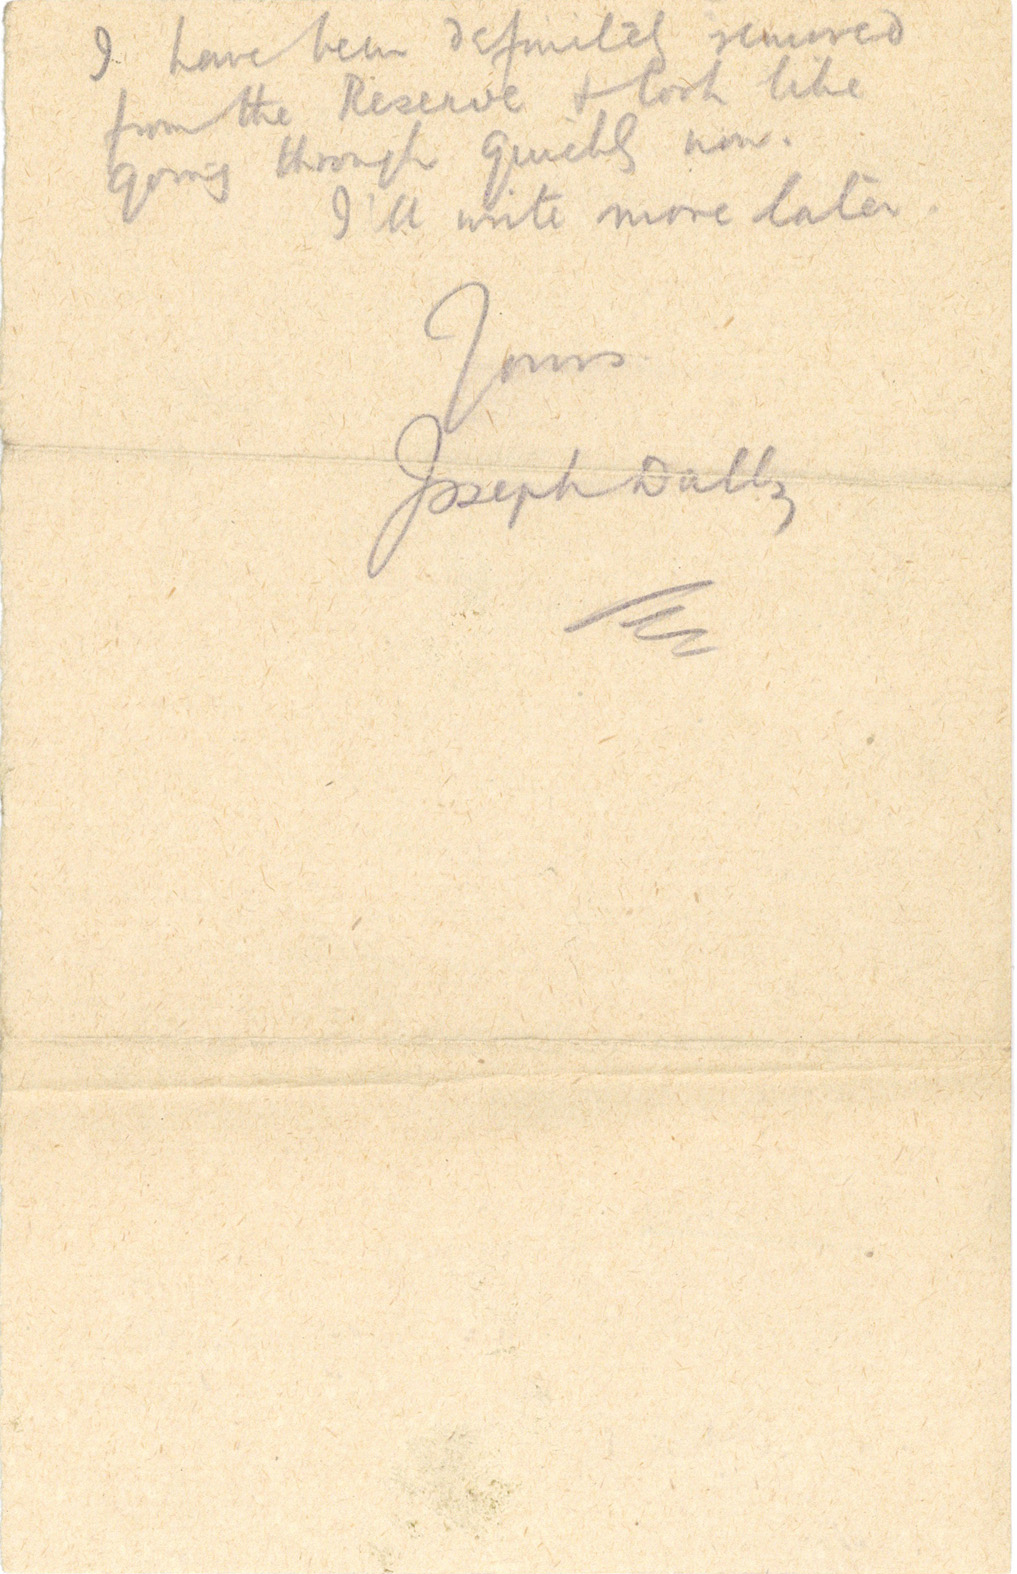 I have been definitely removed
from the Reserve & look like
going through quickly now.
I'll write more later.
Yours
Joseph Dally